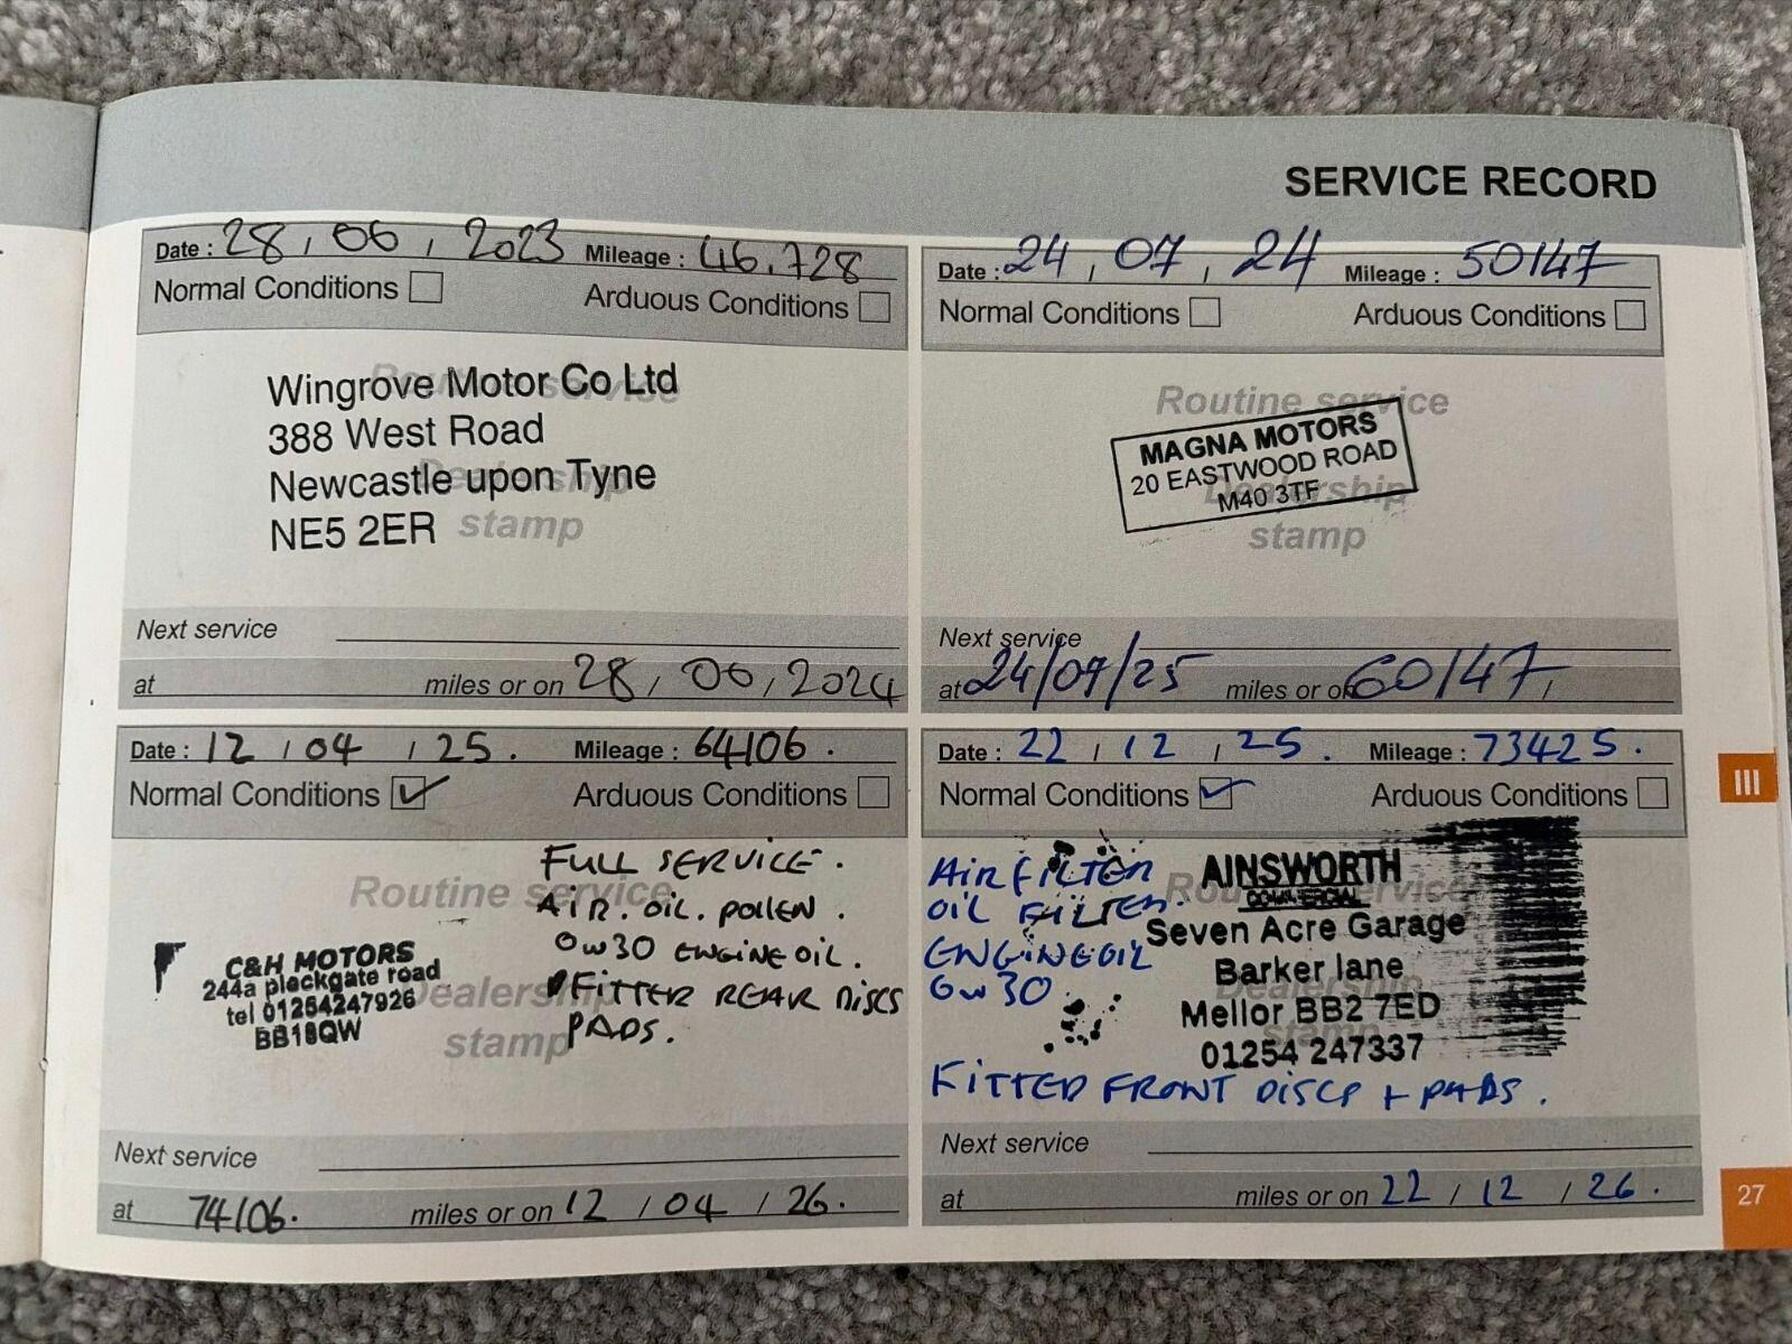 SERVICE RECORD
Date : 28 , 06 , 2023 Mileage : 46.728
Normal Conditions Arduous Conditions
Routine service
Dealership
stamp
Wingrove Motor Co Ltd
388 West Road
Newcastle upon Tyne
NE5 2ER
Next service
at miles or on 28 , 06 , 2024
Date : 24 , 07 , 24 Mileage : 50147
Normal Conditions Arduous Conditions
Routine service
Dealership
stamp
MAGNA MOTORS
20 EASTWOOD ROAD
M40 3TF
Next service
at 24/07/25 miles or on 60147
Date : 12 / 04 / 25 . Mileage : 64106 .
Normal Conditions ✓ Arduous Conditions
Routine service
Dealership
stamp
FULL SERVICE .
AIR . OIL . POLLEN .
0w30 ENGINE OIL .
FITTER REAR DISCS
PADS .
C&H MOTORS
244a plackgate road
tel 01254247926
BB18QW
Next service
at 74106 . miles or on 12 / 04 / 26 .
Date : 22 / 12 / 25 . Mileage : 73425 .
Normal Conditions ✓ Arduous Conditions
Routine service
Dealership
stamp
AIR FILTER
OIL FILTER .
ENGINE OIL
0w30
AINSWORTH
COMMERCIAL
Seven Acre Garage
Barker lane
Mellor BB2 7ED
01254 247337
FITTED FRONT DISCS + PADS .
Next service
at miles or on 22 / 12 / 26 .
III
27